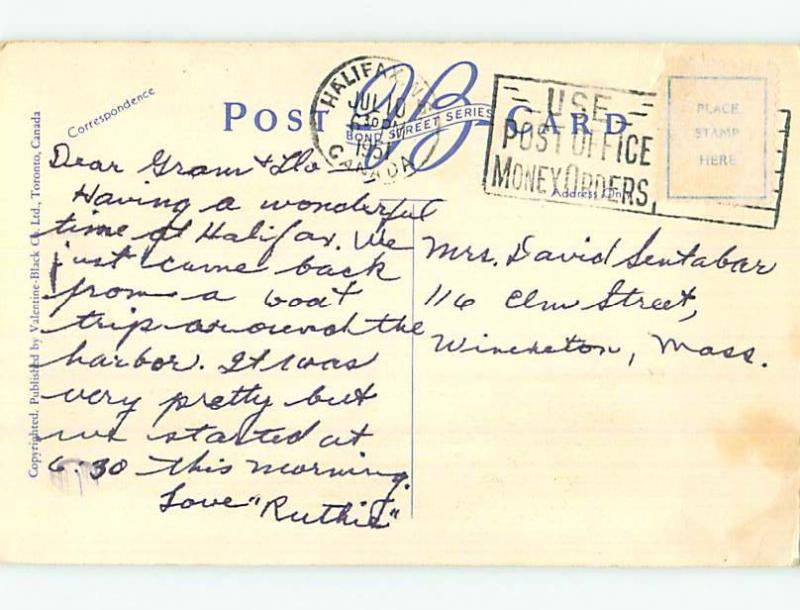 Correspondence
POST CARD
VB
BOND STREET SERIES
HALIFAX
JUL 10
1951
CANADA
USE
POST OFFICE
MONEY ORDERS
PLACE
STAMP
HERE
Address Only
Copyrighted. Published by Valentine-Black Co., Ltd., Toronto, Canada
Dear Gram & Flo
Having a wonderful
time at Halifax. We
just came back
from a boat
trip around the
harbor. It was
very pretty but
we started at
6.30 this morning.
Love "Ruthie"
Mrs. David Sentabar
116 Elm Street,
Winchston, Mass.